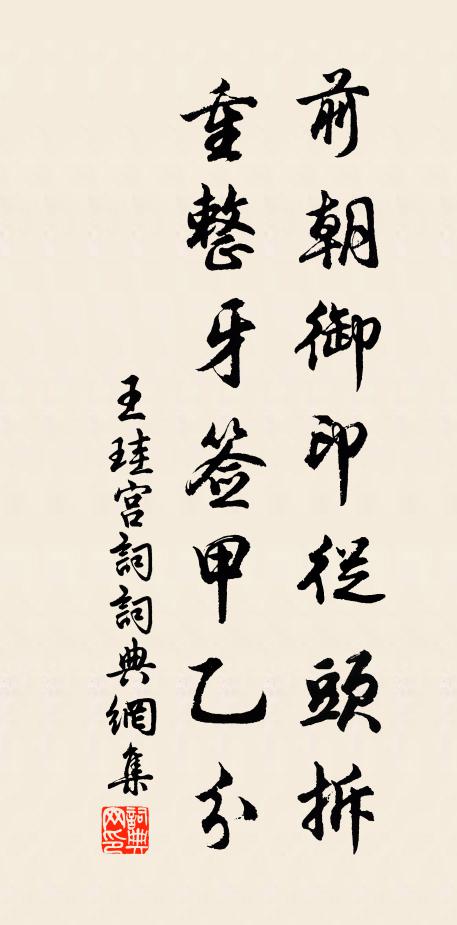 前朝御印從頭拆
重整牙签甲乙分
王珪宫詞詞典網集
詞典网印